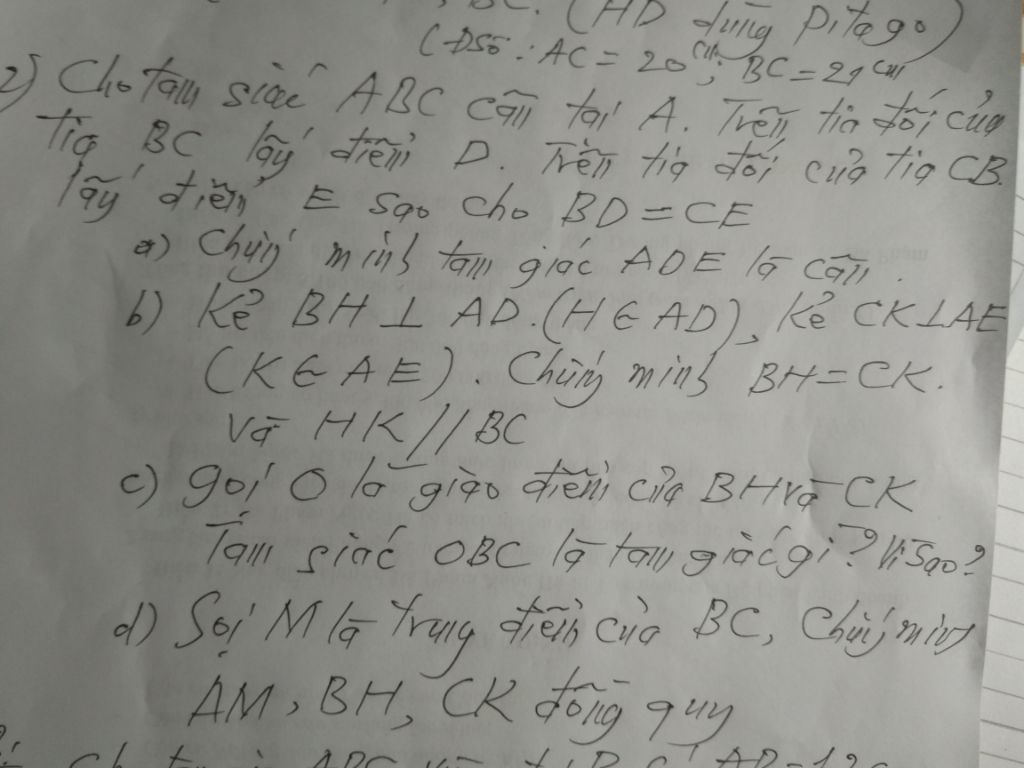 BC. (HD dùng Pitago)
(Đsố: AC = 20cm; BC = 21cm
2) Cho tam giác ABC cân tại A. Trên tia đối của
tia BC lấy điểm D. Trên tia đối của tia CB
lấy điểm E sao cho BD = CE
a) Chứng minh tam giác ADE là cân.
b) Kẻ BH ⊥ AD. (H ∈ AD), Kẻ CK ⊥ AE
(K ∈ AE). Chứng minh BH = CK.
và HK // BC
c) gọi O là giao điểm của BH và CK
Tam giác OBC là tam giác gì? Vì sao?
d) Gọi M là trung điểm của BC, Chứng minh
AM, BH, CK đồng quy
ABC